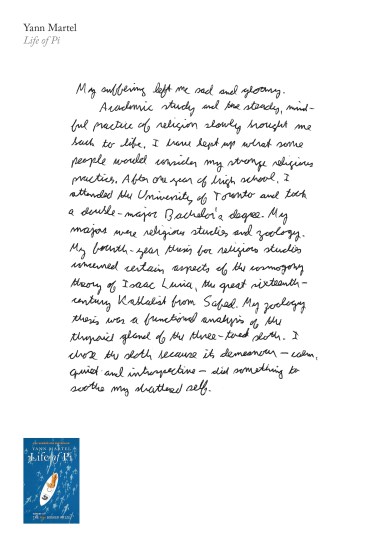 Yann Martel
Life of Pi
My suffering left me sad and gloomy.
Academic study and the steady, mind-
ful practice of religion slowly brought me
back to life. I have kept up what some
people would consider my strange religious
practices. After one year of high school, I
attended the University of Toronto and took
a double-major Bachelor's degree. My
majors were religious studies and zoology.
My fourth-year thesis for religious studies
concerned certain aspects of the cosmogony
theory of Isaac Luria, the great sixteenth-
century Kabbalist from Safed. My zoology
thesis was a functional analysis of the
thyroid gland of the three-toed sloth. I
chose the sloth because its demeanour – calm,
quiet and introspective – did something to
soothe my shattered self.
YANN MARTEL
Life of Pi